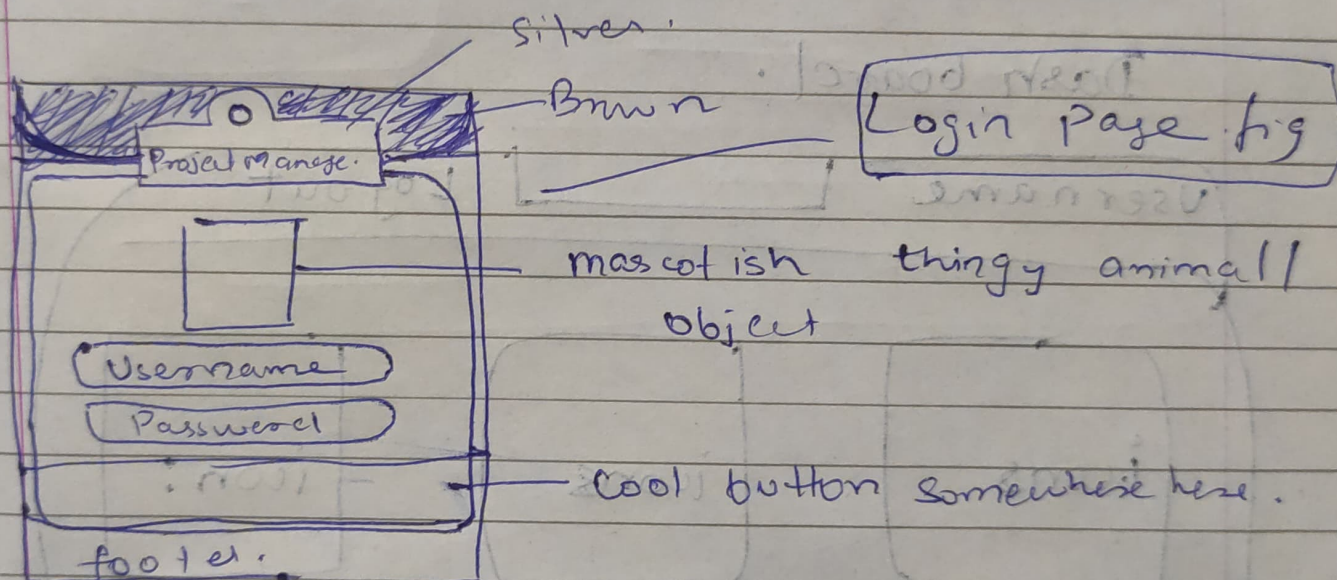 silver.
Brown
Login page fig
Project Manage.
mascotish thingy animal/
object
Username
Password
cool button somewhere here.
footer.